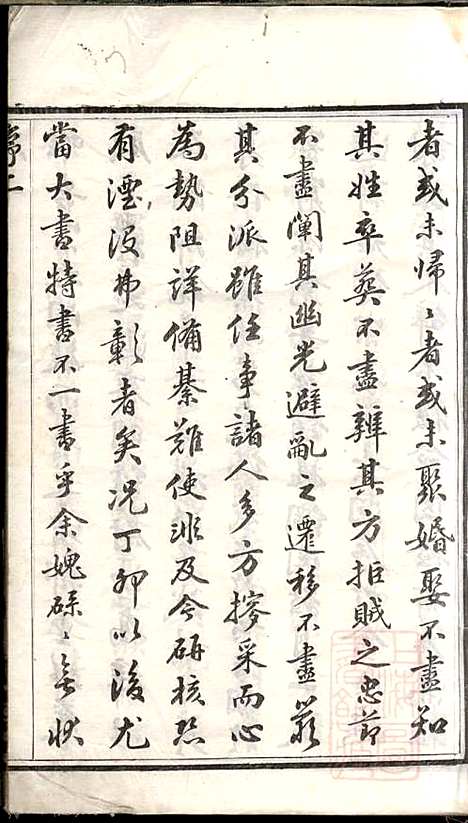 者或未歸歸者或未聚婚娶不盡知
其姓卒葬不盡辨其方拒賊之忠節
不盡闡其幽光避亂之遷移不盡
其分派雖任事諸人多方搜采而心
為勢阻詳備綦難使非及今研核恐
有湮沒弗彰者矣况丁卯以後尤
當大書特書不一書乎余媿碌碌無狀
序二